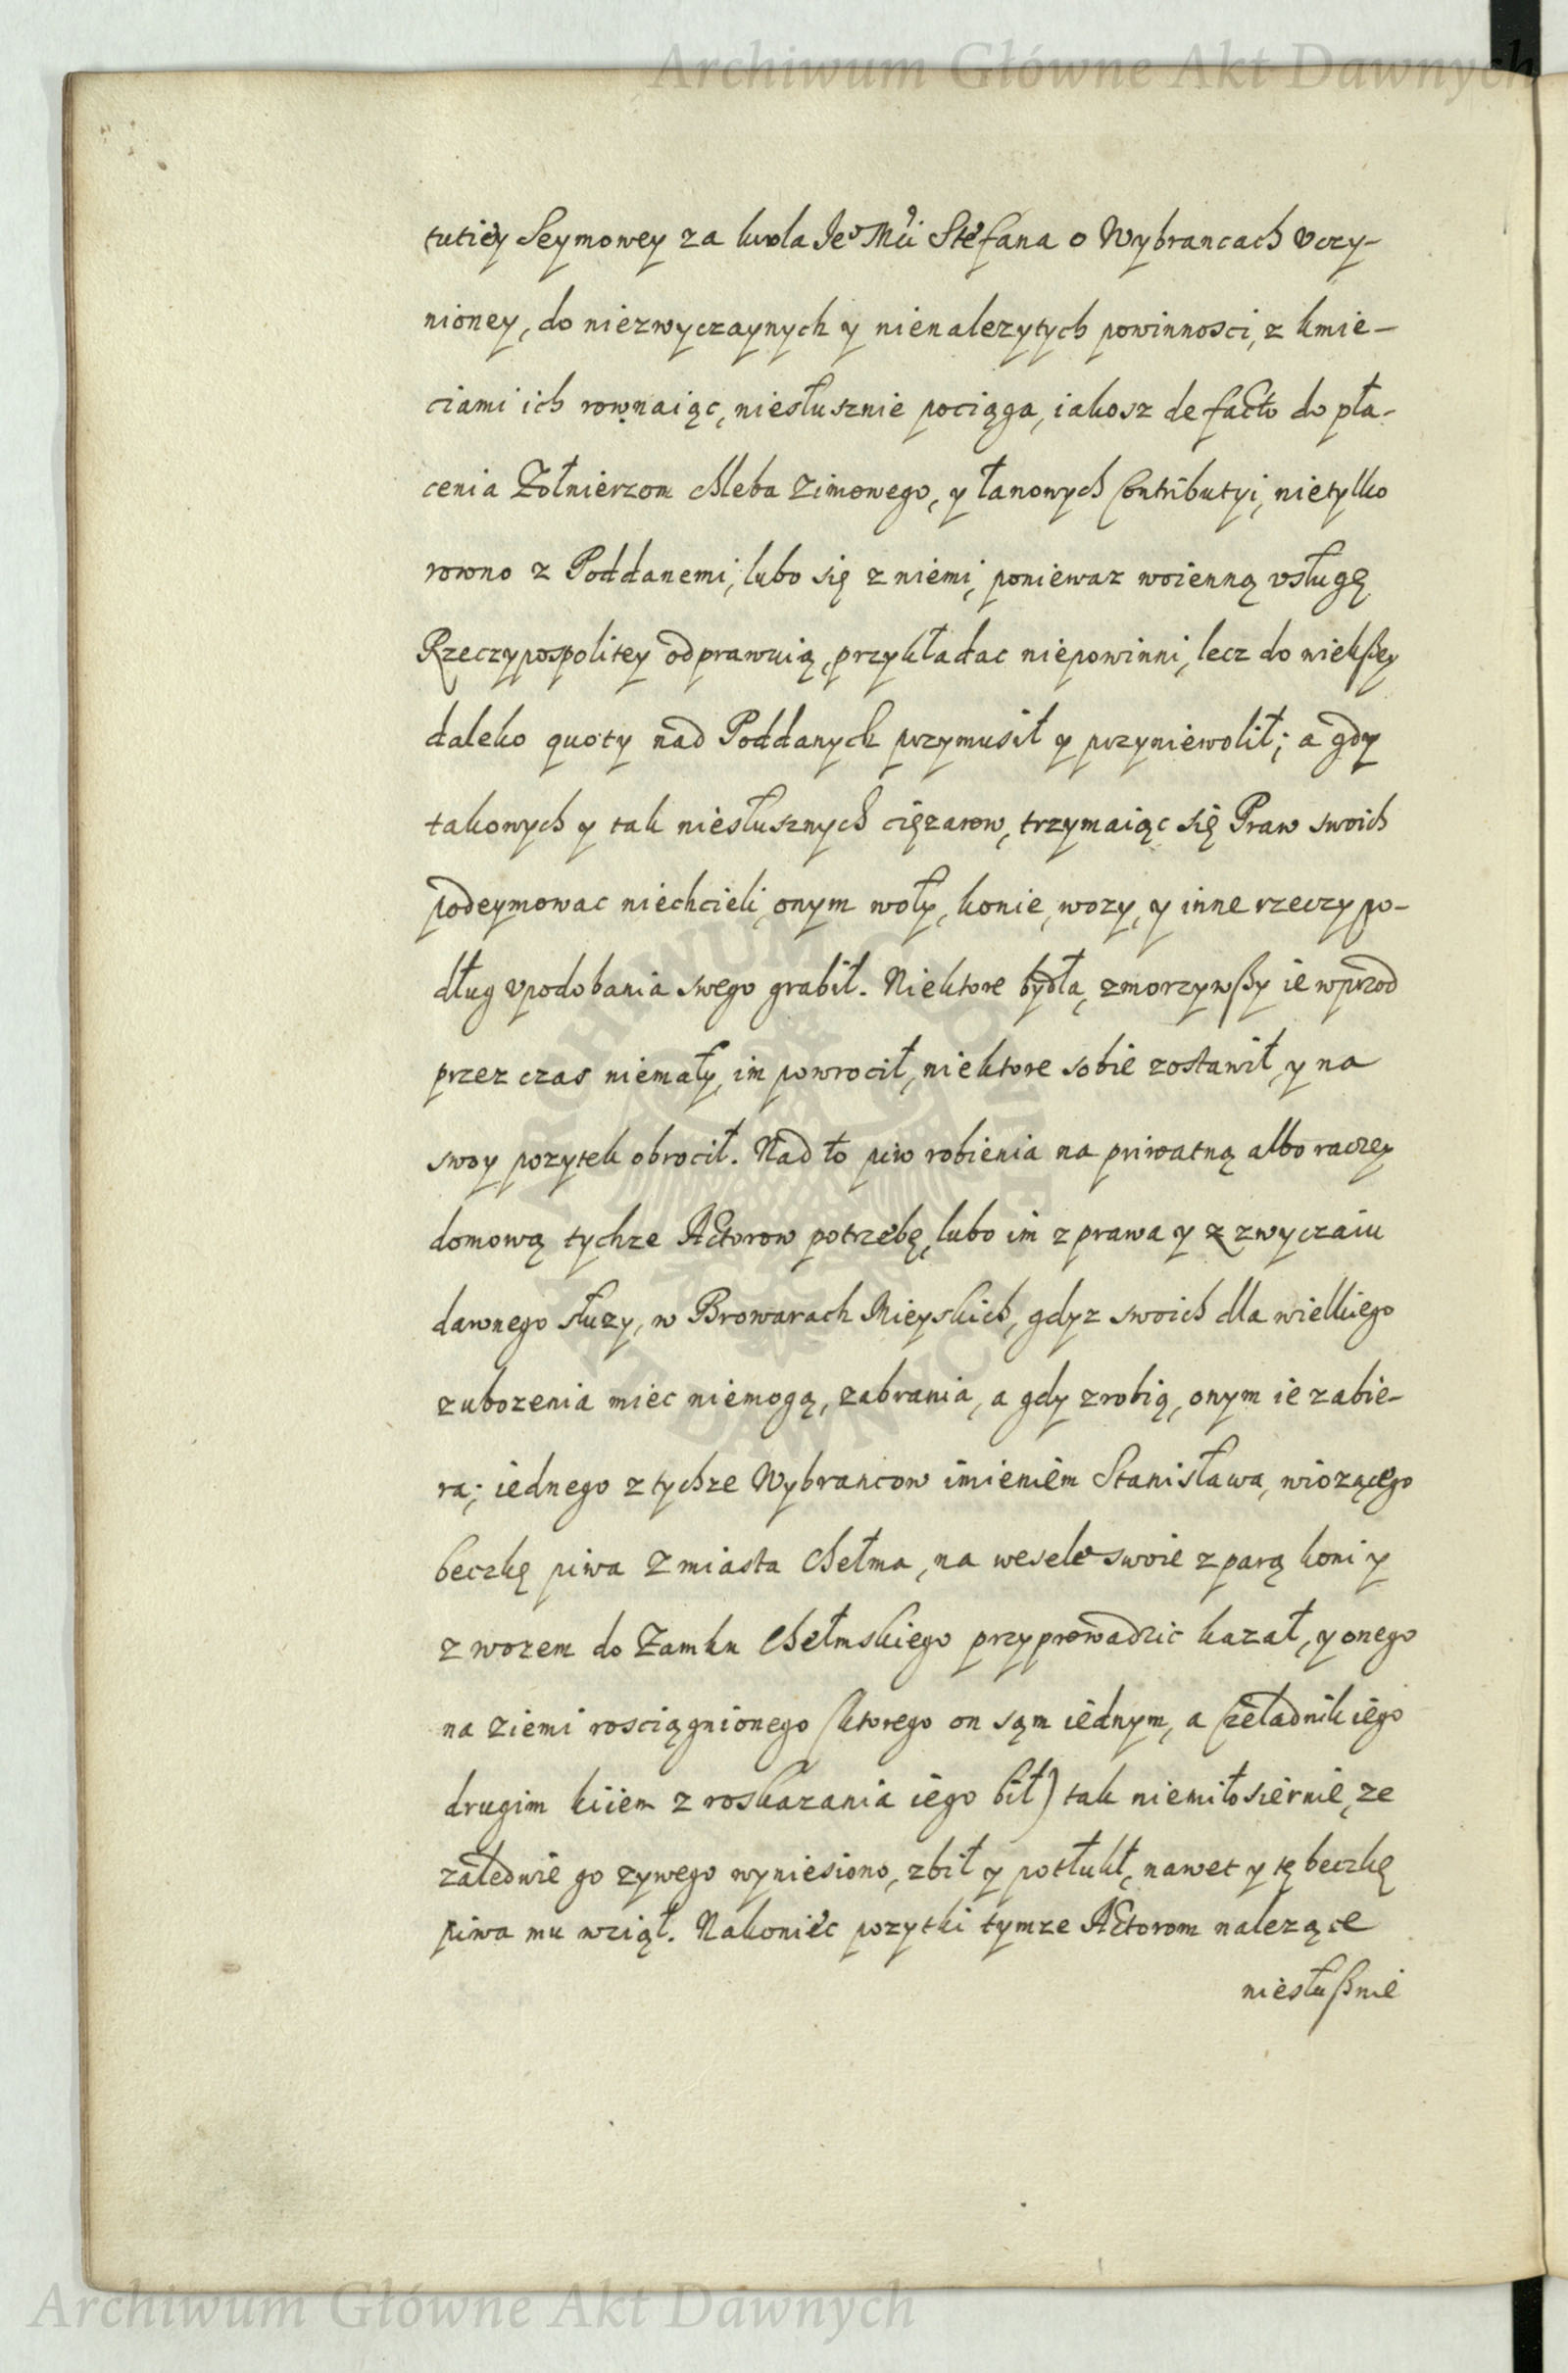 Archiwum Główne Akt Dawnych
tutiey Seymowey za krola Je⁰ Mći Stefana o Wybrancach vczy-
nioney, do niezwyczaynych y nienalezytych powinnosci, z kmie-
ciami ich rownaiąc, niesłusznie pociąga, iakosz de facto do pła-
cenia Zołnierzom chleba Zimowego, y łanowych Contributyi, nietylko
rowno z Poddanemi, lubo się z niemi, poniewaz woienną vsługę
Rzeczypospolitey odprawuią, przykładac niepowinni, lecz do wiekßey
daleko quoty nad Poddanych przymusił y przyniewolił; a gdy
takowych y tak niesłusznych cięzarow, trzymaiąc się Praw swoich
podeymowac niechcieli, onym woły, konie, wozy, y inne rzeczy po-
dług vpodobania swego grabił. Niektore bydła, zmorzywßy ie wprzod
przez czas niemały, im powrocił, niektore sobie zostawił, y na
swoy pozytek obrocił. Nad to piw robienia na priwatną albo raczey
domową tychze Actorow potrzebę, lubo im z prawa y z zwyczaiu
dawnego słuzy, w Browarach Mieyskich, gdyz swoich dla wielkiego
zubozenia miec niemogą, zabrania, a gdy zrobią, onym ie zabie-
ra; iednego z tychze Wybrancow imieniem Stanisława, wiozącego
beczkę piwa z miasta Chełma, na wesele swoie z parą koni y
z wozem do Zamku Chełmskiego przyprowadzic kazał, y onego
na ziemi rosciągnionego (ktorego on sąm iednym, a Czeladnik iego
drugim kiiem z roskazania iego bił) tak niemiłosiernie, ze
zaledwie go zywego wyniesiono, zbił y potłukł, nawet y tę beczkę
piwa mu wziął. Nakoniec pozytki tymze Actorom nalezące
niesłußnie
ARCHIWUM GŁÓWNE AKT DAWNYCH
Archiwum Główne Akt Dawnych